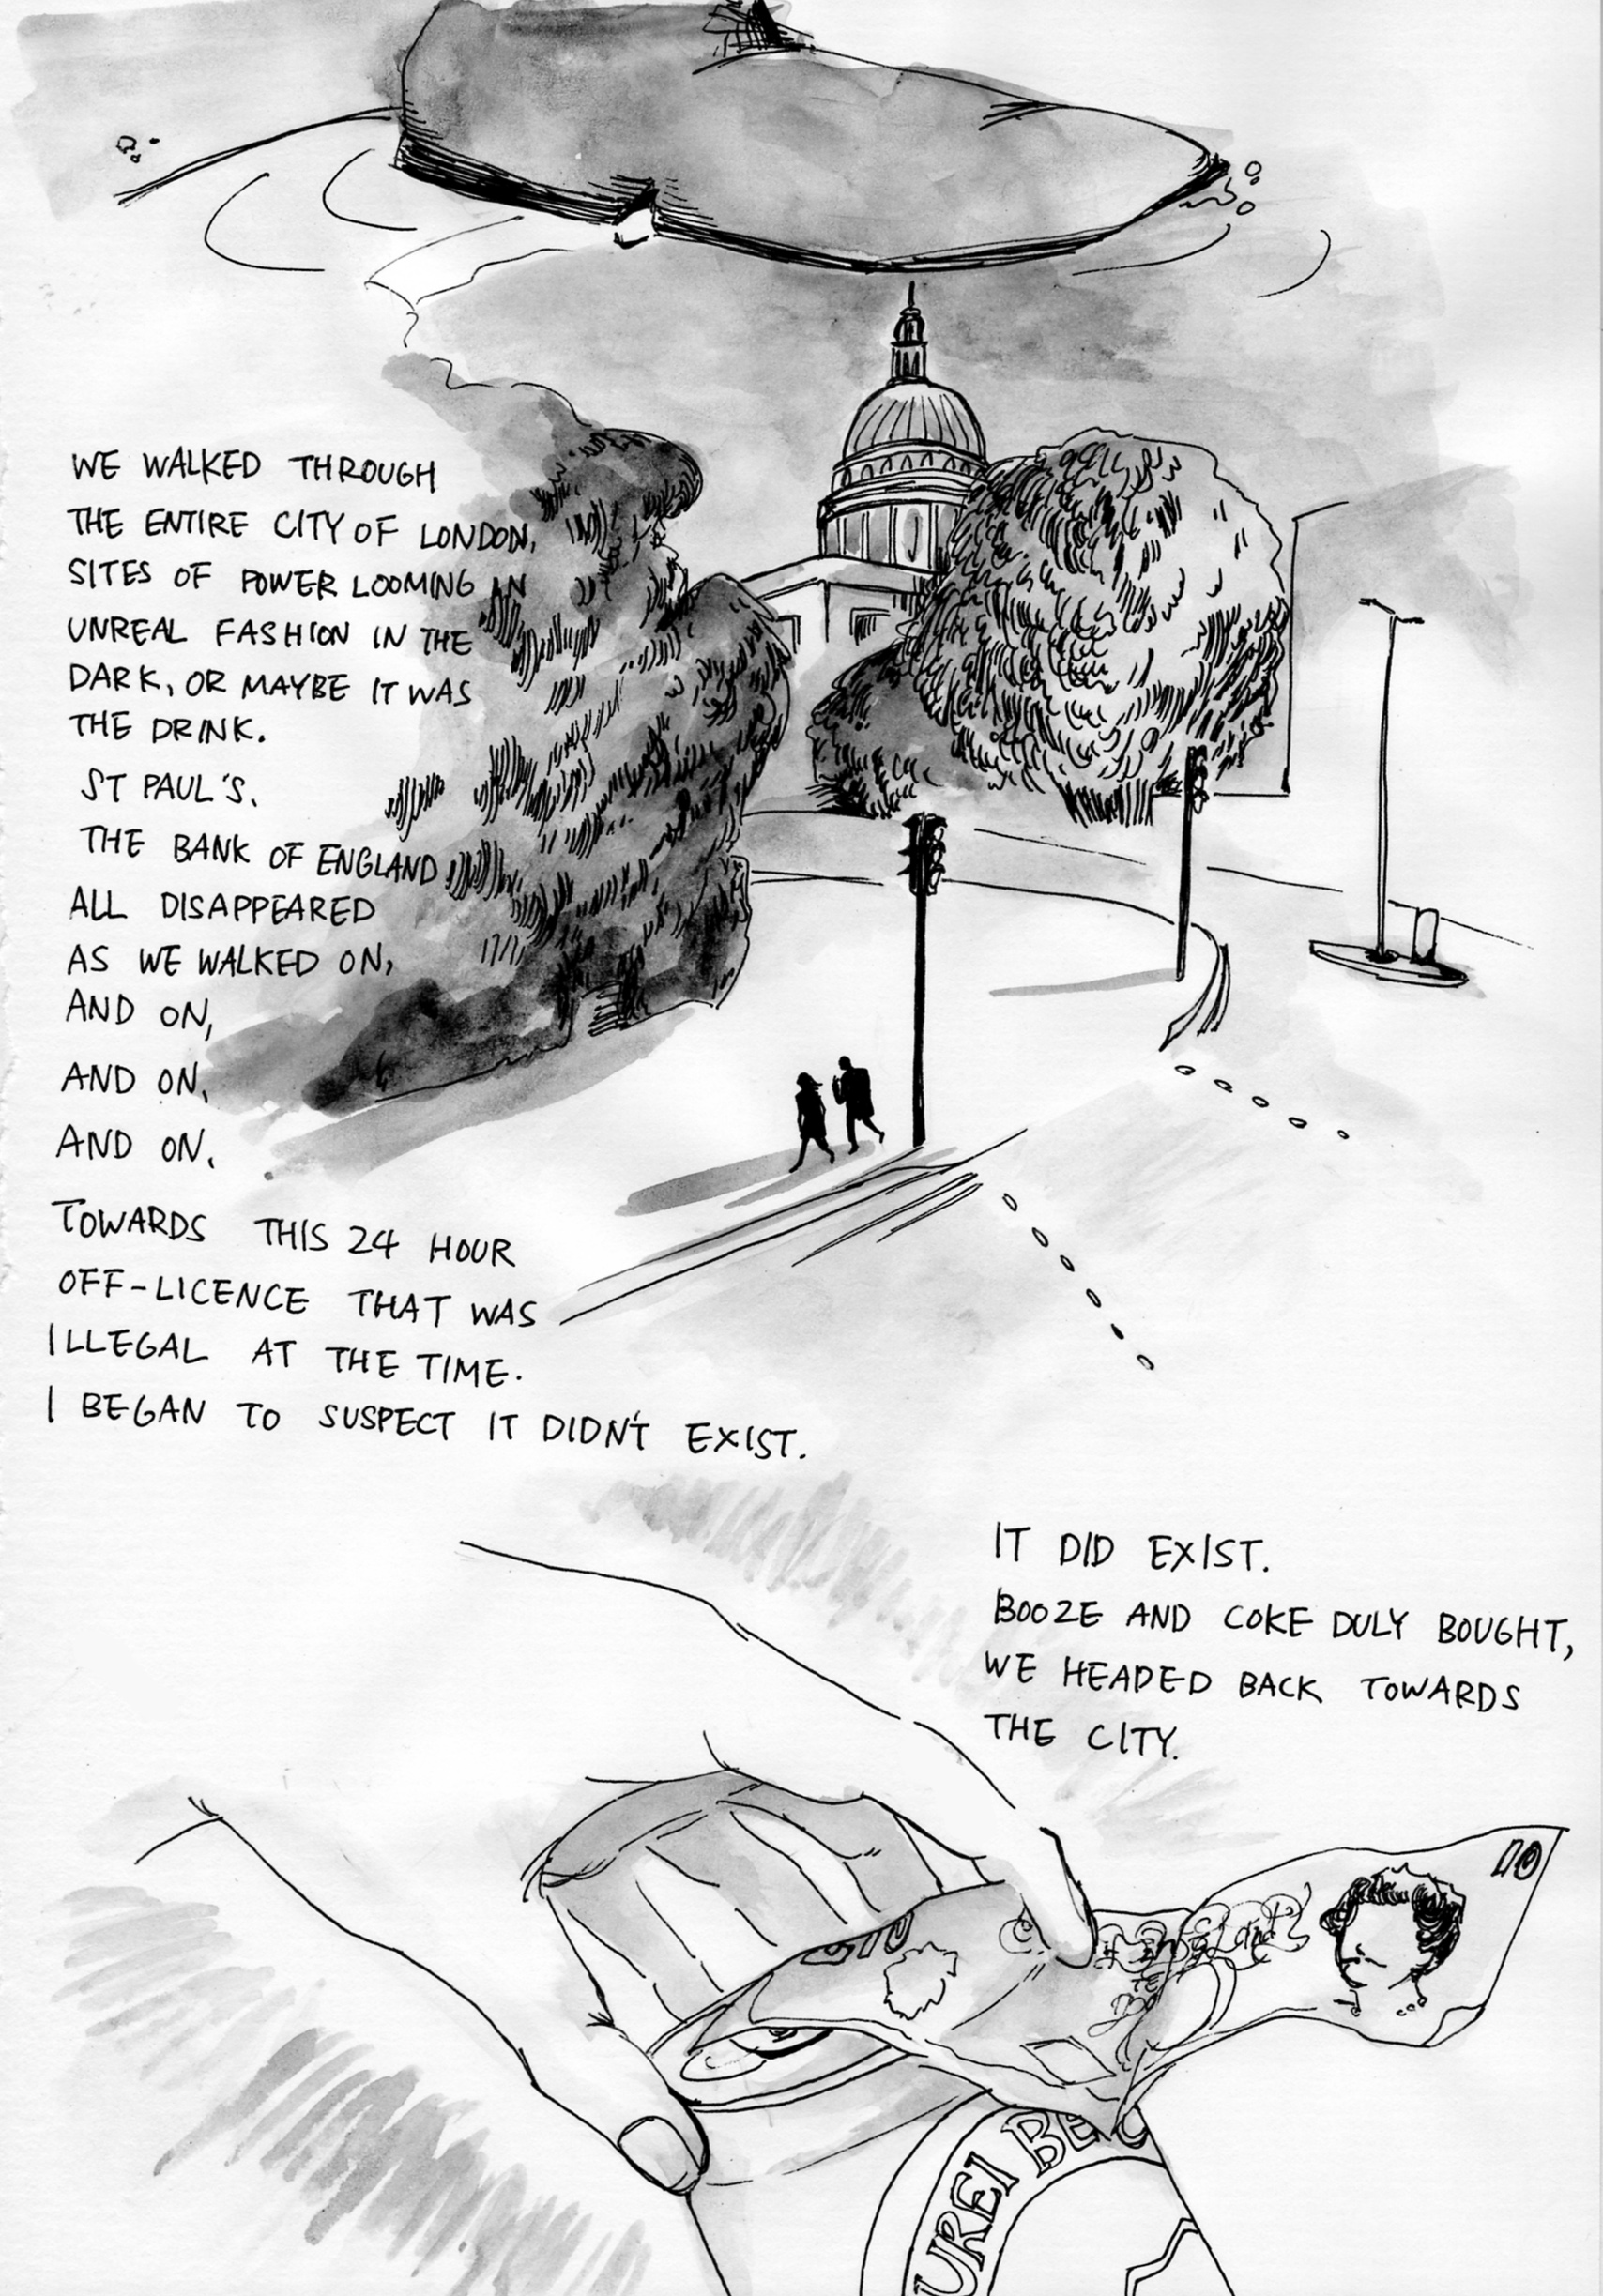 WE WALKED THROUGH
THE ENTIRE CITY OF LONDON,
SITES OF POWER LOOMING IN
UNREAL FASHION IN THE
DARK, OR MAYBE IT WAS
THE DRINK.
ST PAUL'S.
THE BANK OF ENGLAND
ALL DISAPPEARED
AS WE WALKED ON,
AND ON,
AND ON,
AND ON.
TOWARDS THIS 24 HOUR
OFF-LICENCE THAT WAS
ILLEGAL AT THE TIME.
I BEGAN TO SUSPECT IT DIDN'T EXIST.
IT DID EXIST.
BOOZE AND COKE DULY BOUGHT,
WE HEADED BACK TOWARDS
THE CITY.
10
£10
England
UREI BE